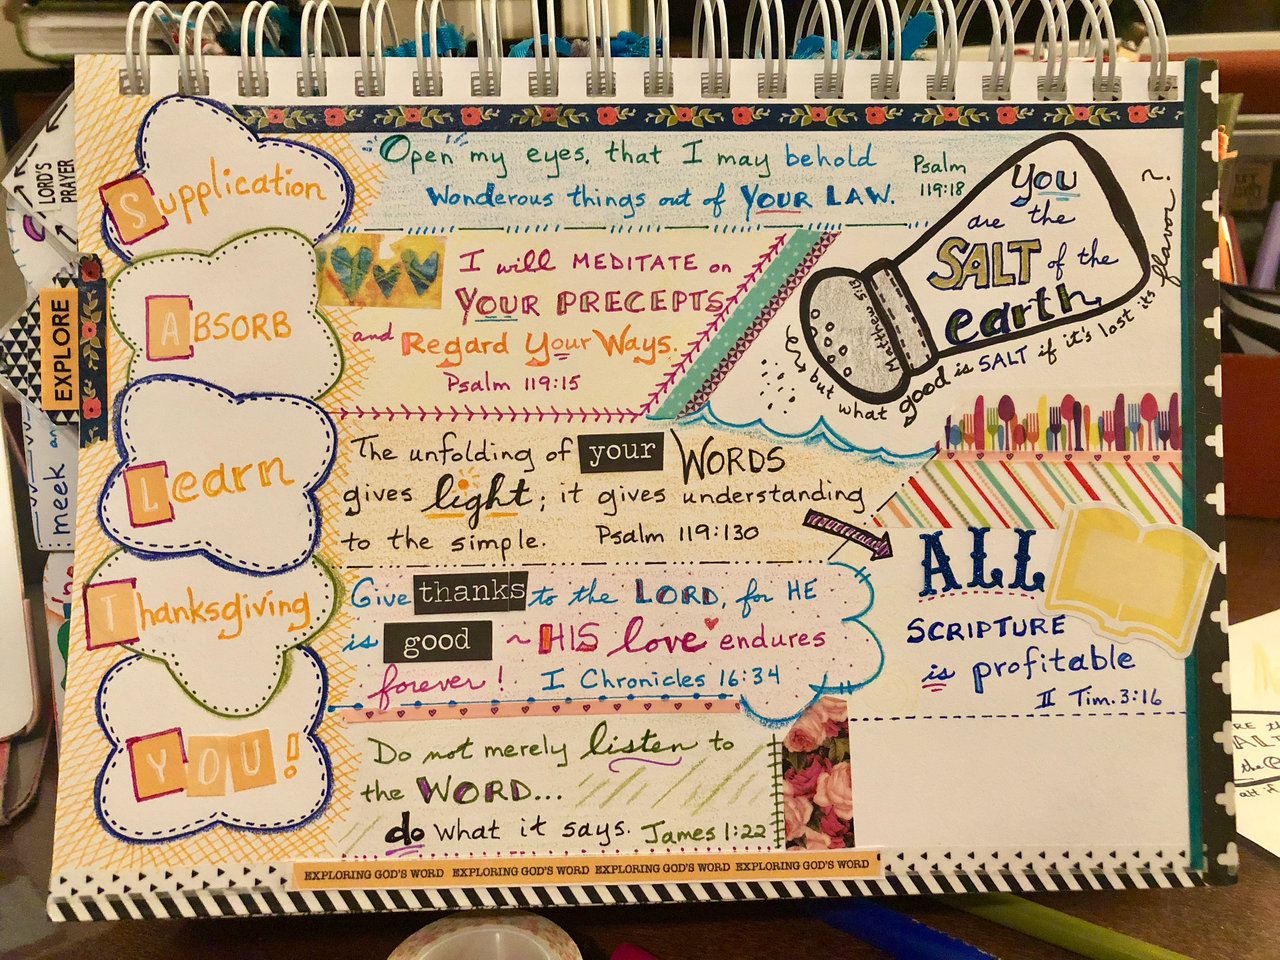 Supplication
ABSORB
Learn
Thanksgiving
YOU!
Open my eyes, that I may behold
Wonderous things out of YOUR LAW.
Psalm
119:18
I will MEDITATE on
YOUR PRECEPTS
and Regard Your Ways.
Psalm 119:15
The unfolding of your WORDS
gives light; it gives understanding
to the simple. Psalm 119:130
Give thanks to the LORD, for HE
is good ~ HIS love endures
forever! I Chronicles 16:34
Do not merely listen to
the WORD...
do what it says. James 1:22
You
are the
SALT of the
earth
Matthew 5:13
but what good is SALT if it's lost its flavor?
ALL
SCRIPTURE
is profitable
II Tim. 3:16
EXPLORING GOD'S WORD EXPLORING GOD'S WORD EXPLORING GOD'S WORD EXPLORING GOD'S WORD
LORD'S
PRAYER
EXPLORE
meek